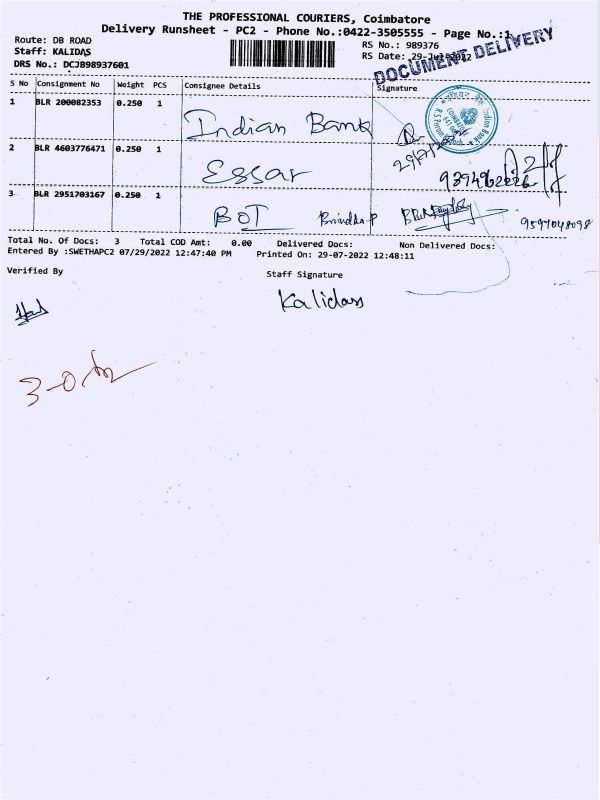 THE PROFESSIONAL COURIERS, Coimbatore
Delivery Runsheet - PC2 - Phone No.:0422-3505555 - Page No.:1
Route: DB ROAD
Staff: KALIDAS
DRS No.: DCJB98937601
RS No.: 989376
RS Date: 29-Jul-2022
DOCUMENT DELIVERY
S No Consignment No Weight PCS Consignee Details Signature
1 BLR 200082353 0.250 1 Indian Bank
29/7/22
2 BLR 4603776471 0.250 1 Essar
3 BLR 2951703167 0.250 1 BOI Brindha P 9597048098
Total No. Of Docs: 3 Total COD Amt: 0.00 Delivered Docs: Non Delivered Docs:
Entered By :SWETHAPC2 07/29/2022 12:47:40 PM Printed On: 29-07-2022 12:48:11
Verified By Staff Signature
Kalidass